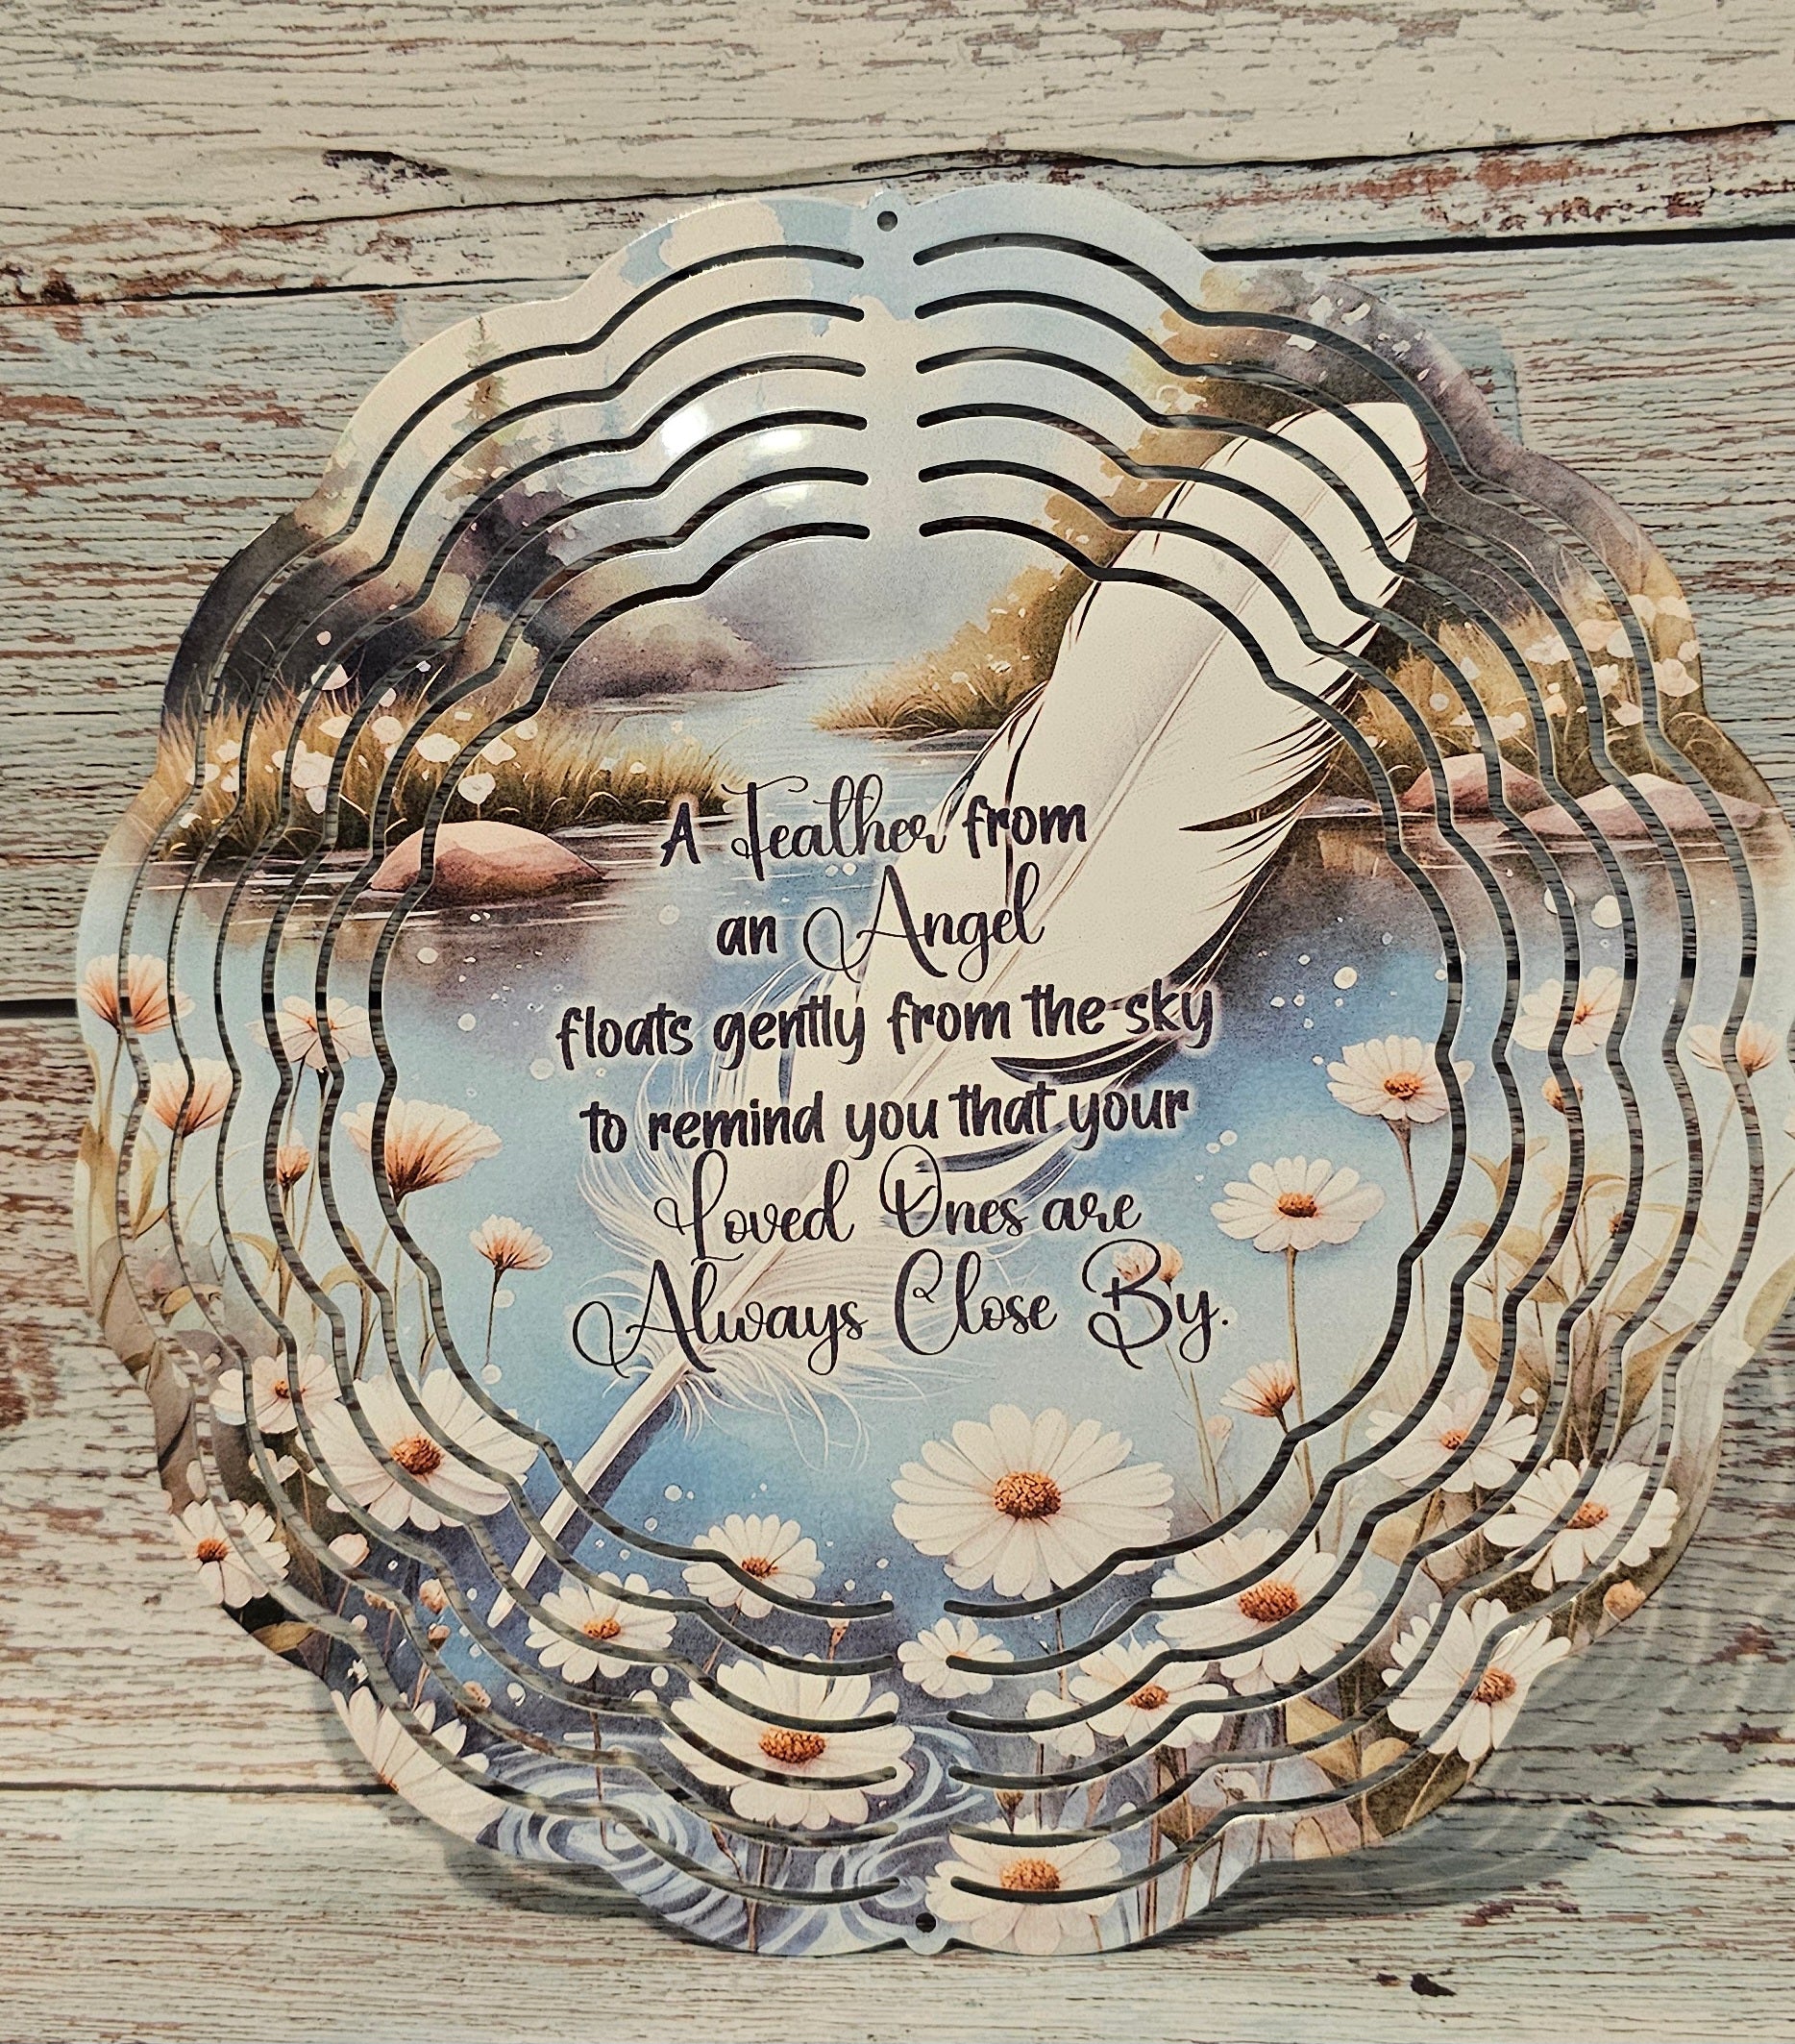 A Feather from
an Angel
floats gently from the sky
to remind you that your
Loved Ones are
Always Close By.